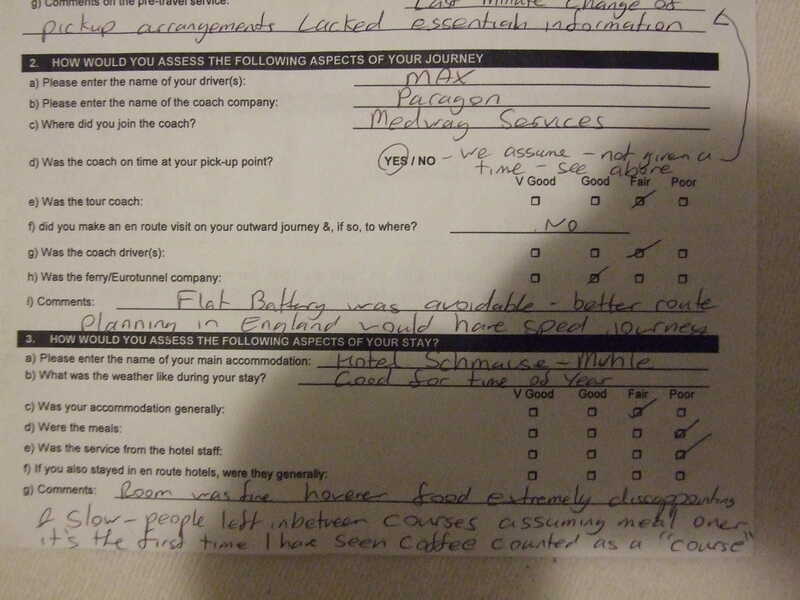 g) Comments on the pre-travel service: Last minute change of
pickup arrangements lacked essential information
2. HOW WOULD YOU ASSESS THE FOLLOWING ASPECTS OF YOUR JOURNEY
a) Please enter the name of your driver(s): MAX
b) Please enter the name of the coach company: Paragon
c) Where did you join the coach? Medway Services
d) Was the coach on time at your pick-up point? YES / NO - we assume - not given a
time - see above
V Good Good Fair Poor
e) Was the tour coach:
f) did you make an en route visit on your outward journey &, if so, to where? NO
g) Was the coach driver(s):
h) Was the ferry/Eurotunnel company:
i) Comments: Flat Battery was avoidable - better route
planning in England would have sped journey
3. HOW WOULD YOU ASSESS THE FOLLOWING ASPECTS OF YOUR STAY?
a) Please enter the name of your main accommodation: Hotel Schmause - Muhle
b) What was the weather like during your stay? Good for time of Year
V Good Good Fair Poor
c) Was your accommodation generally:
d) Were the meals:
e) Was the service from the hotel staff:
f) If you also stayed in en route hotels, were they generally:
g) Comments: Room was fine however food extremely disappointing
& slow - people left inbetween courses assuming meal over
it's the first time I have seen Coffee counted as a "course"